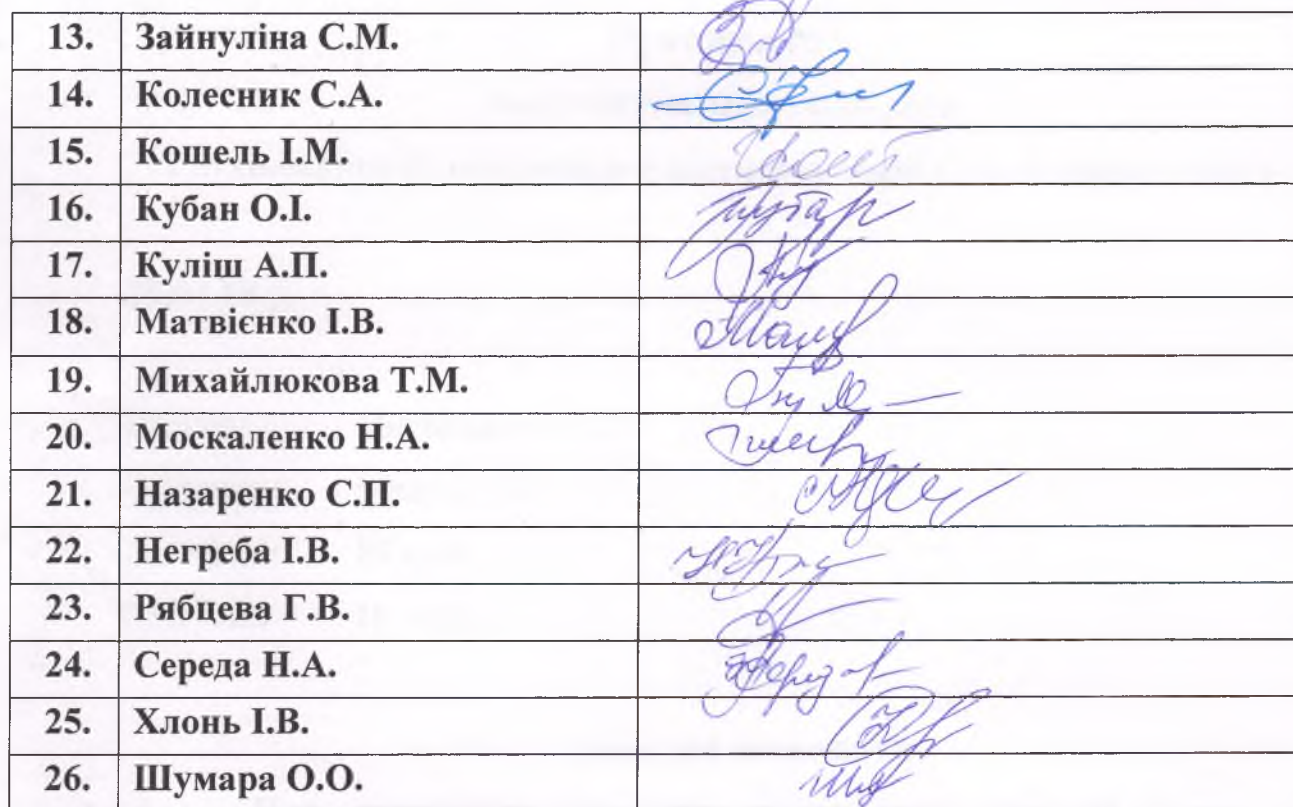 13. Зайнуліна С.М.
14. Колесник С.А.
15. Кошель І.М.
16. Кубан О.І.
17. Куліш А.П.
18. Матвієнко І.В.
19. Михайлюкова Т.М.
20. Москаленко Н.А.
21. Назаренко С.П.
22. Негреба І.В.
23. Рябцева Г.В.
24. Середа Н.А.
25. Хлонь І.В.
26. Шумара О.О.